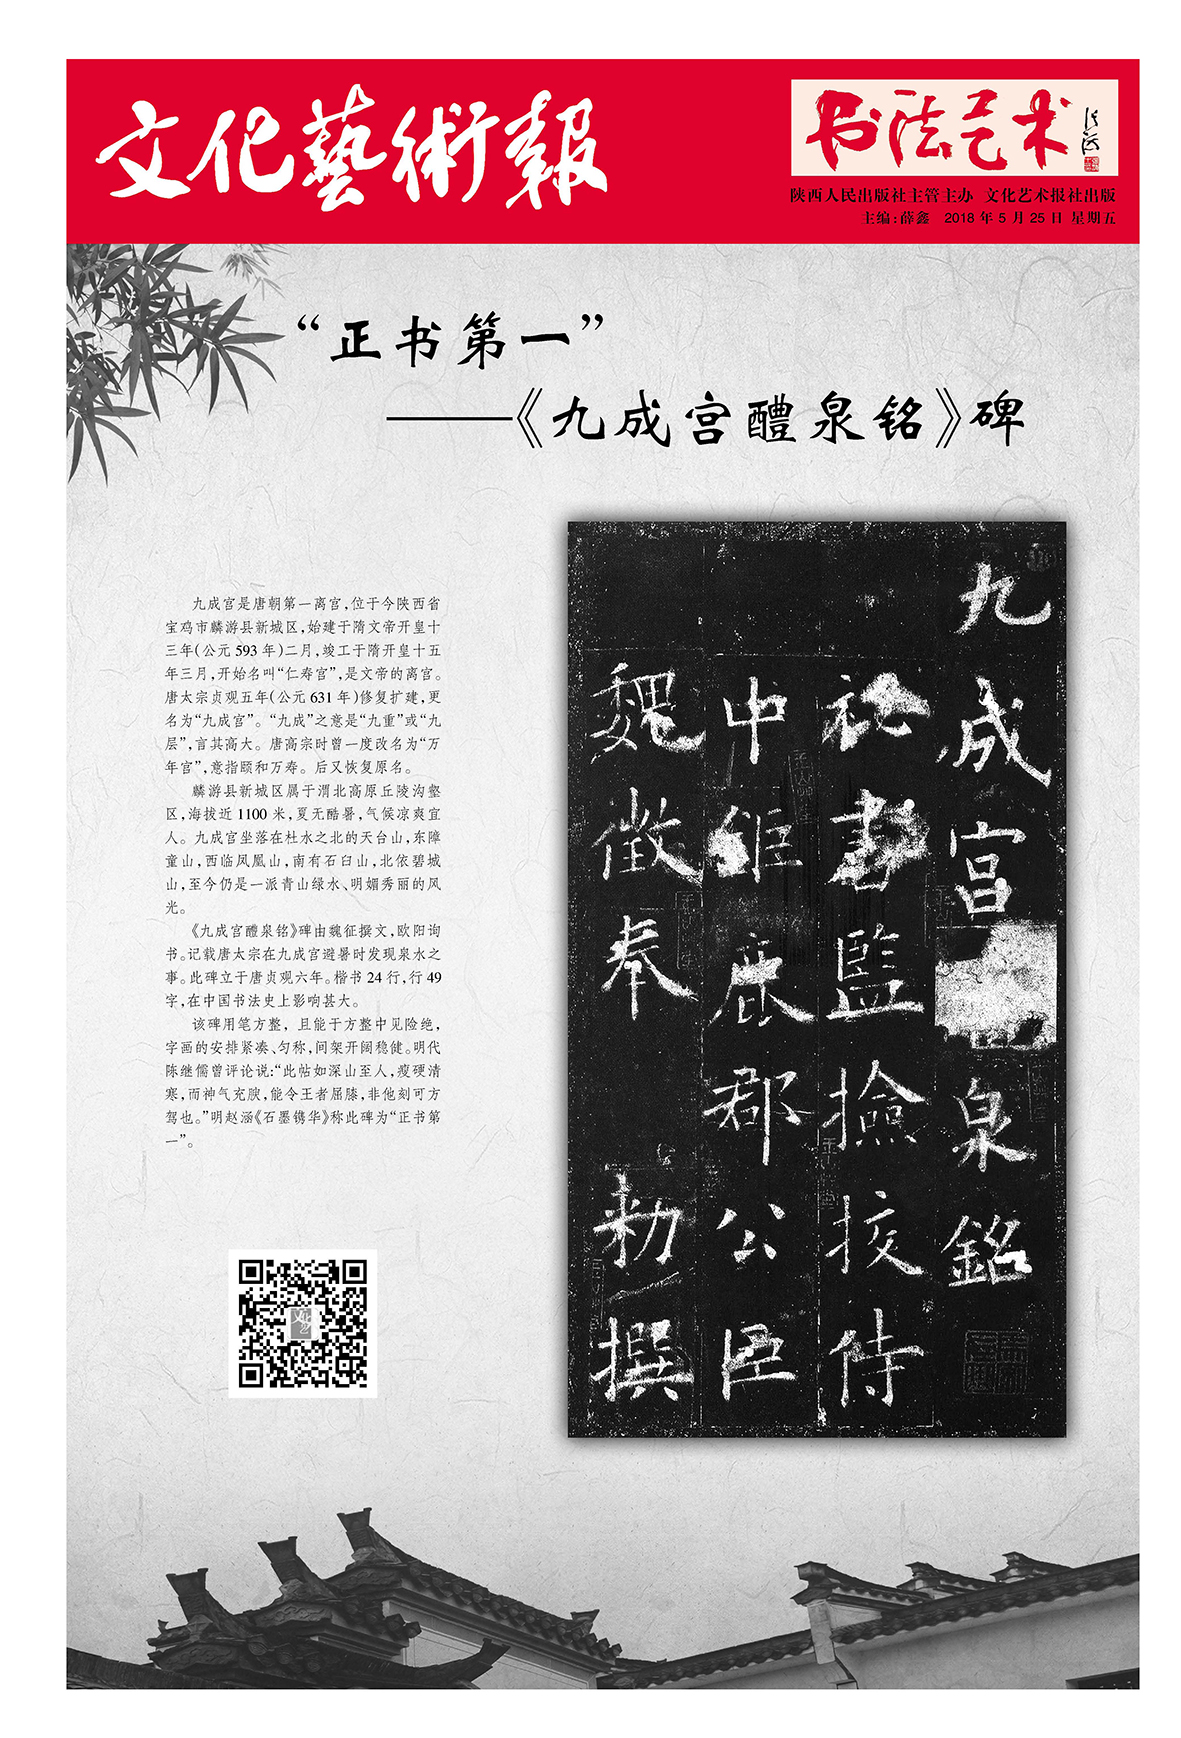 文化藝術報
书法艺术
陕西人民出版社主管主办 文化艺术报社出版
主编:薛鑫 2018年5月25日 星期五
“正书第一”
——《九成宫醴泉铭》碑
九成宫是唐朝第一离宫,位于今陕西省
宝鸡市麟游县新城区,始建于隋文帝开皇十
三年(公元593年)二月,竣工于隋开皇十五
年三月,开始名叫“仁寿宫”,是文帝的离宫。
唐太宗贞观五年(公元631年)修复扩建,更
名为“九成宫”。“九成”之意是“九重”或“九
层”,言其高大。唐高宗时曾一度改名为“万
年宫”,意指颐和万寿。后又恢复原名。
麟游县新城区属于渭北高原丘陵沟壑
区,海拔近1100米,夏无酷暑,气候凉爽宜
人。九成宫坐落在杜水之北的天台山,东障
童山,西临凤凰山,南有石臼山,北依碧城
山,至今仍是一派青山绿水、明媚秀丽的风
光。
《九成宫醴泉铭》碑由魏征撰文,欧阳询
书。记载唐太宗在九成宫避暑时发现泉水之
事。此碑立于唐贞观六年。楷书24行,行49
字,在中国书法史上影响甚大。
该碑用笔方整,且能于方整中见险绝,
字画的安排紧凑、匀称,间架开阔稳健。明代
陈继儒曾评论说:“此帖如深山至人,瘦硬清
寒,而神气充腴,能令王者屈膝,非他刻可方
驾也。”明赵涵《石墨镌华》称此碑为“正书第
一”。
九成宫泉銘
祕書監撿挍侍
中鉅鹿郡公臣
魏徵奉 勑撰